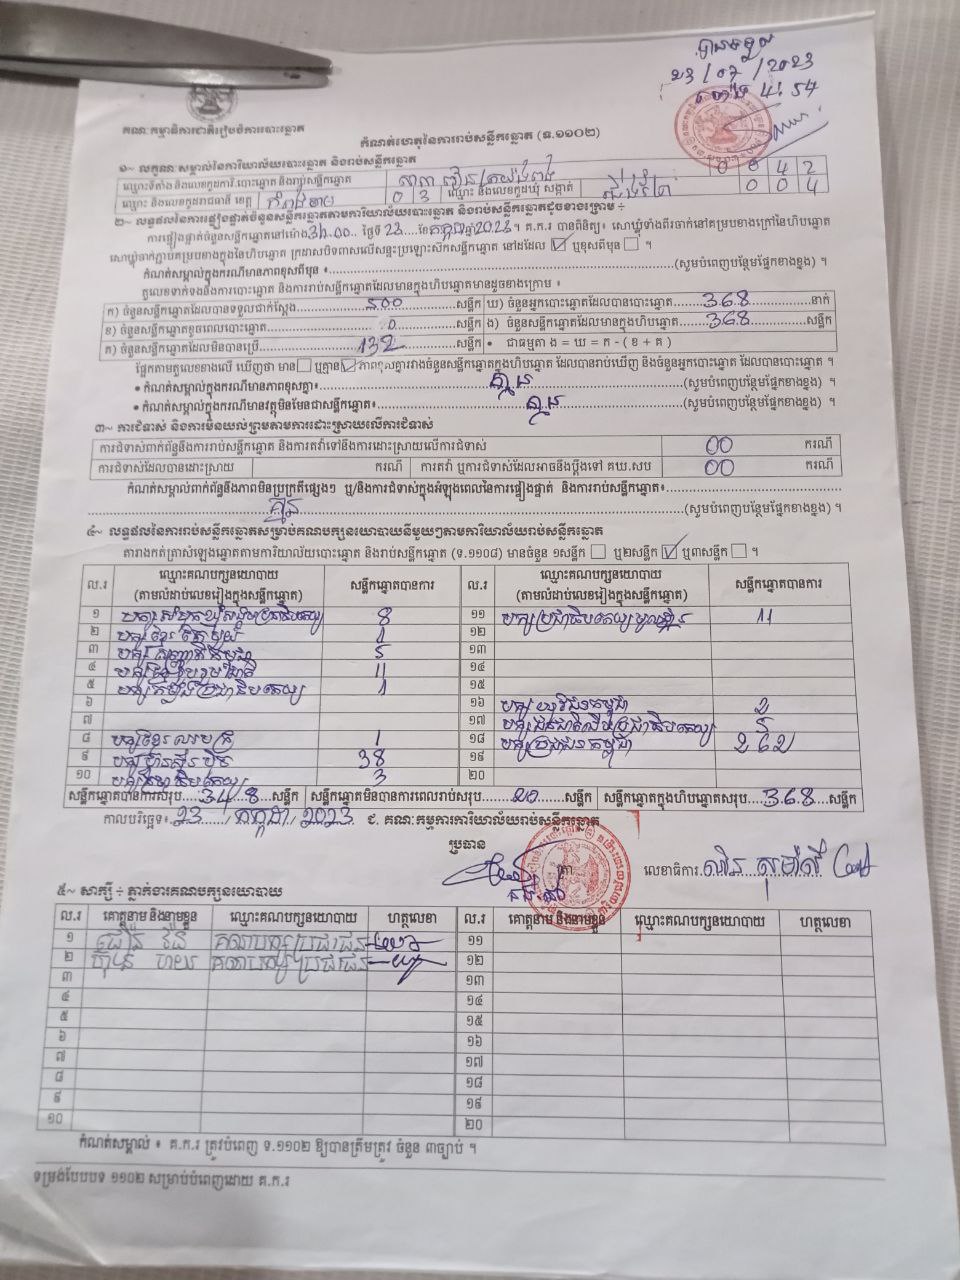 បានទទួល
23/07/2023
ម៉ោង 4:54
គណៈកម្មាធិការជាតិរៀបចំការបោះឆ្នោត
កំណត់ហេតុនៃការរាប់សន្លឹកឆ្នោត (ទ.១១០២)
១~ លក្ខណៈសម្គាល់នៃការិយាល័យបោះឆ្នោត និងរាប់សន្លឹកឆ្នោត
ឈ្មោះទីតាំង និងលេខកូដការិ.បោះឆ្នោត និងរាប់សន្លឹកឆ្នោត 0 0 4 2
ឈ្មោះ និងលេខកូដរាជធានី ខេត្ត កំពង់ចាម 0 3 ឈ្មោះ និងលេខកូដឃុំ សង្កាត់ 0 0 4
២~ លទ្ធផលនៃការផ្ទៀងផ្ទាត់ចំនួនសន្លឹកឆ្នោតតាមការិយាល័យបោះឆ្នោត និងរាប់សន្លឹកឆ្នោតដូចខាងក្រោម ÷
ការផ្ទៀងផ្ទាត់ចំនួនសន្លឹកឆ្នោតនៅម៉ោង 3h.00 ថ្ងៃទី 23 ខែ កក្កដា ឆ្នាំ 2023 ។ គ.ក.រ បានពិនិត្យ៖ សោឃ្លុំទាំងពីរចាក់នៅគម្របខាងក្រៅនៃហិបឆ្នោត
សោឃ្លុំចាក់ភ្ជាប់គម្របខាងក្នុងនៃហិបឆ្នោត ក្រដាសបិទពាសលើសន្ទះប្រឡោះសឹកសន្លឹកឆ្នោត នៅដដែល ☑ ឬខុសពីមុន ☐ ។
កំណត់សម្គាល់ក្នុងករណីមានភាពខុសពីមុន ៖ (សូមបំពេញបន្ថែមផ្នែកខាងខ្នង) ។
តួលេខទាក់ទងនឹងការបោះឆ្នោត និងការរាប់សន្លឹកឆ្នោតដែលមានក្នុងហិបឆ្នោតមានដូចខាងក្រោម ៖
ក) ចំនួនសន្លឹកឆ្នោតដែលបានទទួលជាក់ស្តែង 500 សន្លឹក ឃ) ចំនួនអ្នកបោះឆ្នោតដែលបានបោះឆ្នោត 368 នាក់
ខ) ចំនួនសន្លឹកឆ្នោតខូចពេលបោះឆ្នោត 0 សន្លឹក ង) ចំនួនសន្លឹកឆ្នោតដែលមានក្នុងហិបឆ្នោត 368 សន្លឹក
គ) ចំនួនសន្លឹកឆ្នោតដែលមិនបានប្រើ 132 សន្លឹក • ជាធម្មតា ង = ឃ = ក - ( ខ + គ )
ផ្អែកតាមតួលេខខាងលើ ឃើញថា មាន ☐ ឬគ្មាន ☑ ភាពខុសគ្នារវាងចំនួនសន្លឹកឆ្នោតក្នុងហិបឆ្នោត ដែលបានរាប់ឃើញ និងចំនួនអ្នកបោះឆ្នោត ដែលបានបោះឆ្នោត ។
• កំណត់សម្គាល់ក្នុងករណីមានភាពខុសគ្នា៖ គ្មាន (សូមបំពេញបន្ថែមផ្នែកខាងខ្នង) ។
• កំណត់សម្គាល់ក្នុងករណីមានវត្ថុមិនមែនជាសន្លឹកឆ្នោត៖ គ្មាន (សូមបំពេញបន្ថែមផ្នែកខាងខ្នង) ។
៣~ ការជំទាស់ និងការមិនយល់ព្រមតាមការដោះស្រាយលើការជំទាស់
ការជំទាស់ពាក់ព័ន្ធនឹងការរាប់សន្លឹកឆ្នោត និងការតវ៉ាទៅនឹងការដោះស្រាយលើការជំទាស់ 00 ករណី
ការជំទាស់ដែលបានដោះស្រាយ ករណី ការតវ៉ា ឬការជំទាស់ដែលអាចនឹងប្តឹងទៅ គឃ.សប 00 ករណី
កំណត់សម្គាល់ពាក់ព័ន្ធនឹងភាពមិនប្រក្រតីផ្សេងៗ ឬ/និងការជំទាស់ក្នុងអំឡុងពេលនៃការផ្ទៀងផ្ទាត់ និងការរាប់សន្លឹកឆ្នោត៖
គ្មាន (សូមបំពេញបន្ថែមផ្នែកខាងខ្នង) ។
៤~ លទ្ធផលនៃការរាប់សន្លឹកឆ្នោតសម្រាប់គណបក្សនយោបាយនីមួយៗតាមការិយាល័យរាប់សន្លឹកឆ្នោត
តារាងកត់ត្រាសំឡេងឆ្នោតតាមការិយាល័យបោះឆ្នោត និងរាប់សន្លឹកឆ្នោត (ទ.១១០៨) មានចំនួន ១សន្លឹក ☐ ឬ២សន្លឹក ☑ ឬ៣សន្លឹក ☐ ។
ល.រ ឈ្មោះគណបក្សនយោបាយ (តាមលំដាប់លេខរៀងក្នុងសន្លឹកឆ្នោត) សន្លឹកឆ្នោតបានការ ល.រ ឈ្មោះគណបក្សនយោបាយ (តាមលំដាប់លេខរៀងក្នុងសន្លឹកឆ្នោត) សន្លឹកឆ្នោតបានការ
១ 8 ១១ បក្សប្រជាធិបតេយ្យមូលដ្ឋាន 11
២ បក្សខ្មែរតែមួយ 1 ១២
៣ បក្សសញ្ជាតិកម្ពុជា 5 ១៣
៤ បក្សខ្មែររួបរួមជាតិ 11 ១៤
៥ បក្សកម្លាំងប្រជាធិបតេយ្យ 1 ១៥
៦ ១៦ បក្សយុវជនកម្ពុជា 2
៧ ១៧ បក្សជនជាតិដើមប្រជាធិបតេយ្យ 5
៨ 1 ១៨ បក្សប្រជាជនកម្ពុជា 262
៩ បក្សហ៊្វុនស៊ិនប៉ិច 38 ១៩
១០ 3 ២០
សន្លឹកឆ្នោតបានការសរុប 348 សន្លឹក សន្លឹកឆ្នោតមិនបានការពេលរាប់សរុប 20 សន្លឹក សន្លឹកឆ្នោតក្នុងហិបឆ្នោតសរុប 368 សន្លឹក
កាលបរិច្ឆេទ៖ 23 / កក្កដា / 2023 ជ. គណៈកម្មការការិយាល័យរាប់សន្លឹកឆ្នោត
ប្រធាន
ត្រា
លេខាធិការ
៥~ សាក្សី ÷ ភ្នាក់ងារគណបក្សនយោបាយ
ល.រ គោត្តនាម និងនាមខ្លួន ឈ្មោះគណបក្សនយោបាយ ហត្ថលេខា ល.រ គោត្តនាម និងនាមខ្លួន ឈ្មោះគណបក្សនយោបាយ ហត្ថលេខា
១ គណបក្សប្រជាជន ១១
២ គណបក្សប្រជាជន ១២
៣ ១៣
៤ ១៤
៥ ១៥
៦ ១៦
៧ ១៧
៨ ១៨
៩ ១៩
១០ ២០
កំណត់សម្គាល់ ៖ គ.ក.រ ត្រូវបំពេញ ទ.១១០២ ឱ្យបានត្រឹមត្រូវ ចំនួន ៣ច្បាប់ ។
ទម្រង់បែបបទ ១១០២ សម្រាប់បំពេញដោយ គ.ក.រ